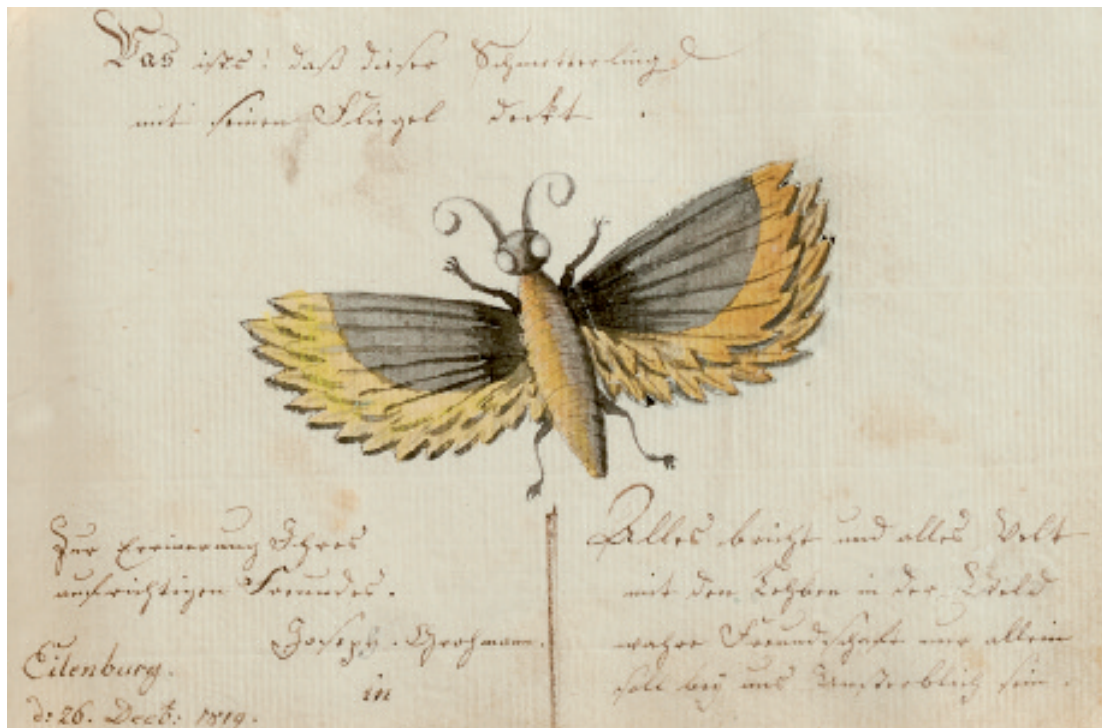 Was ists! daß dieser Schmetterling
mit seinen Fliegel deckt
Zur Errinerung Ihres
aufrichtigen Freundes.
Joseph. Grohmann.
in
Eilenburg.
d: 26. Decb: 1819.
Alles bricht und alles
mit den Lehben in der
wahre Freundschaft nur allein
soll bey uns Unsterblich sein.